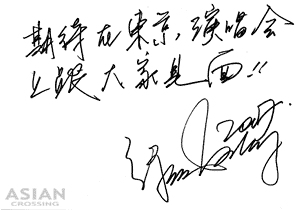 期待在東京演唱会
上跟大家見面!!
2009
ASIAN
CROSSING